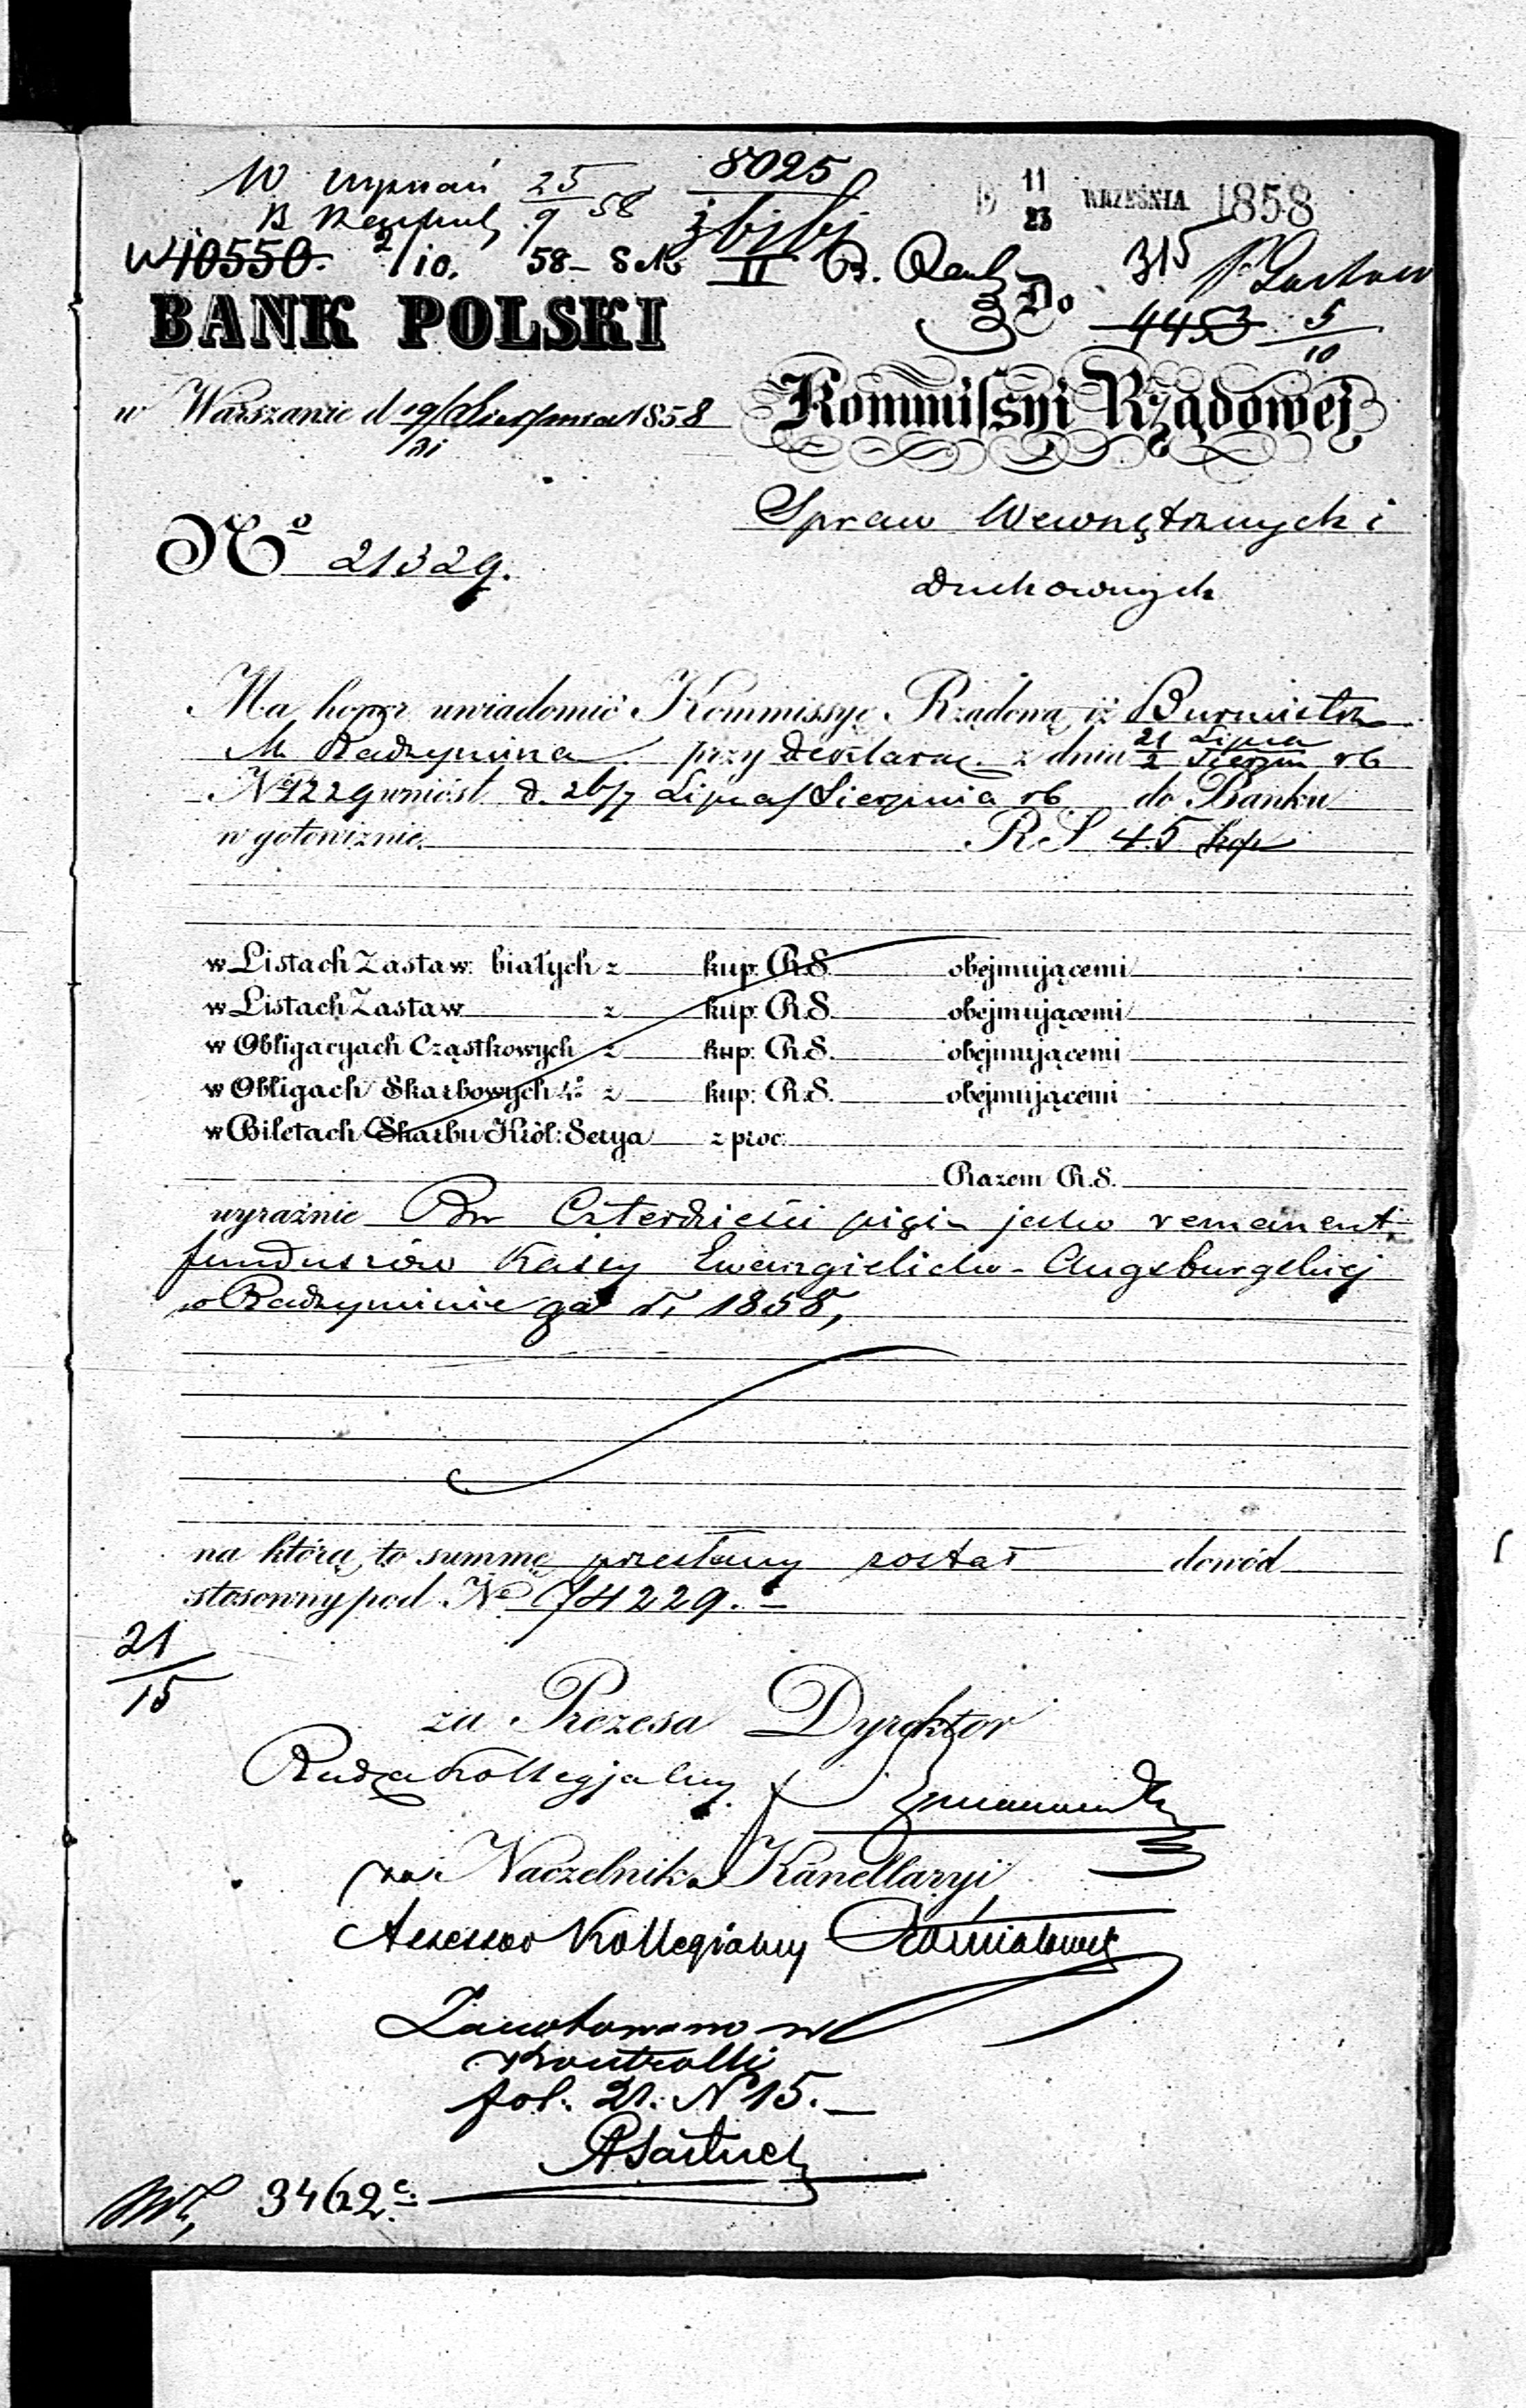 8025
25/9 58
11/23 WRZEŚNIA 1858
W 10550. 2/10. 58 - II
315
Do
4453 5/10
BANK POLSKI
Kommissyi Rządowej
w Warszawie d 1858
Spraw Wewnętrznych i
Duchownych
No 21329.
Ma honor uwiadomić Kommissyę Rządową, iż Burmistrz
M Radzymina przy deklarac. z dnia 21/2 Lipca/Sierpn rb
No 1229 wniósł d. 26/7 Lipca/Sierpnia rb do Banku
w gotowiznie RS 45 kop
w Listach Zastaw: białych z kup: R.S. obejmującemi
w Listach Zastaw z kup: R.S. obejmującemi
w Obligacyach Cząstkowych z kup: R.S. obejmującemi
w Obligach Skarbowych 4% z kup: R.S. obejmującemi
w Biletach Skarbu Król: Serya z proc:
Razem R.S.
wyraźnie Rsr Czterdzieści pięć jako remanent
funduszów Kassy Ewangielicko-Augsburgskiej
w Radzyminie za r. 1858,
na którą to summę przesłany został dowód
stosowny pod No 74229.-
21/15
za Prezesa Dyrektor
Radza Kollegjalny
Naczelnik Kancellaryi
Assessor Kollegialny
Zanotowano w
Kontrolli
fol. 21. N 15.-
3462